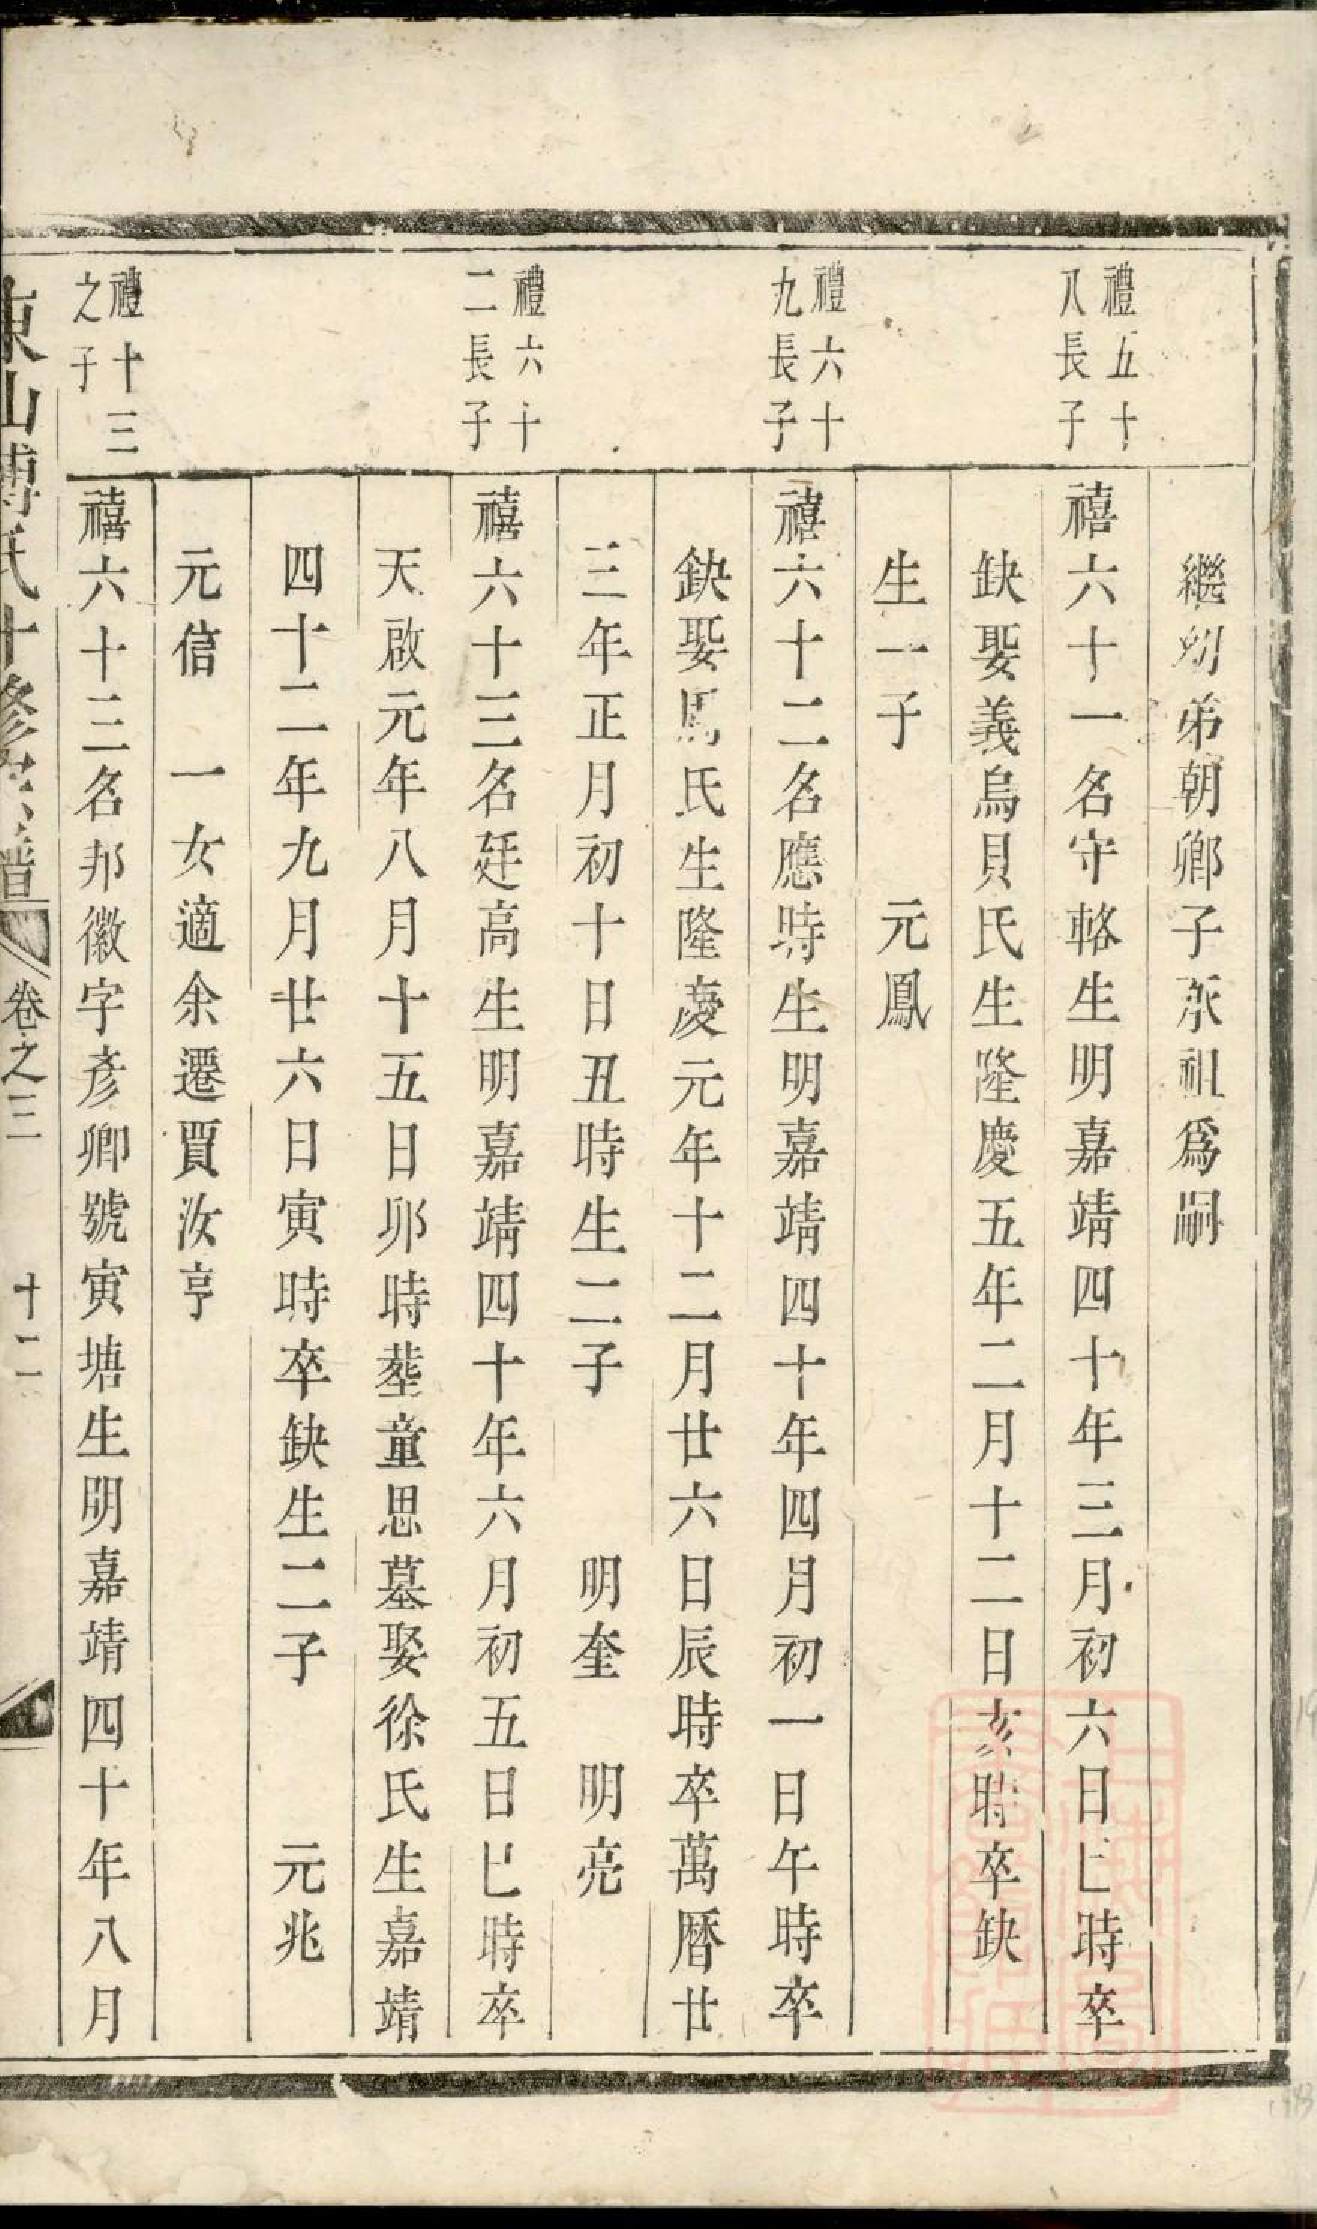 繼胞弟朝卿子承祖爲嗣
禮五十
八長子
禧六十一名守輅生明嘉靖四十年三月初六日巳時卒
缺娶義烏貝氏生隆慶五年二月十二日亥時卒缺
生一子　元鳳
禮六十
九長子
禧六十二名應時生明嘉靖四十年四月初一日午時卒
缺娶馬氏生隆慶元年十二月廿六日辰時卒萬曆廿
三年正月初十日丑時生二子　明奎　明亮
禮六十
二長子
禧六十三名廷高生明嘉靖四十年六月初五日巳時卒
天啟元年八月十五日卯時塟童思墓娶徐氏生嘉靖
四十二年九月廿六日寅時卒缺生二子　元兆
元信　一女適余遷賈汝亨
禮十三
之子
禧六十三名邦徽字彥卿號寅塘生明嘉靖四十年八月
東山傅氏十修宗譜　卷之三　十二